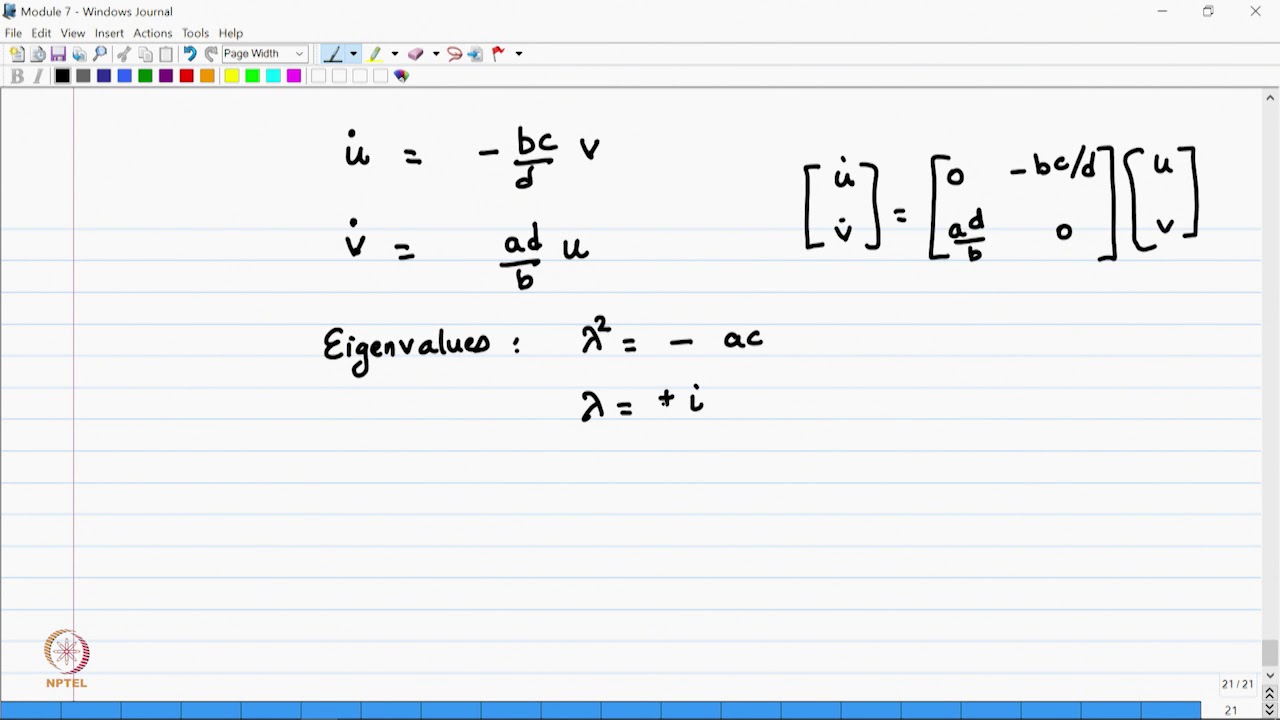 Module 7 - Windows Journal
File Edit View Insert Actions Tools Help
Page Width
B I
u̇ = - bc/d v
v̇ = ad/b u
[u̇ v̇] = [0 -bc/d ad/b 0] [u v]
Eigenvalues : λ² = - ac
λ = + i
NPTEL
21/21
21